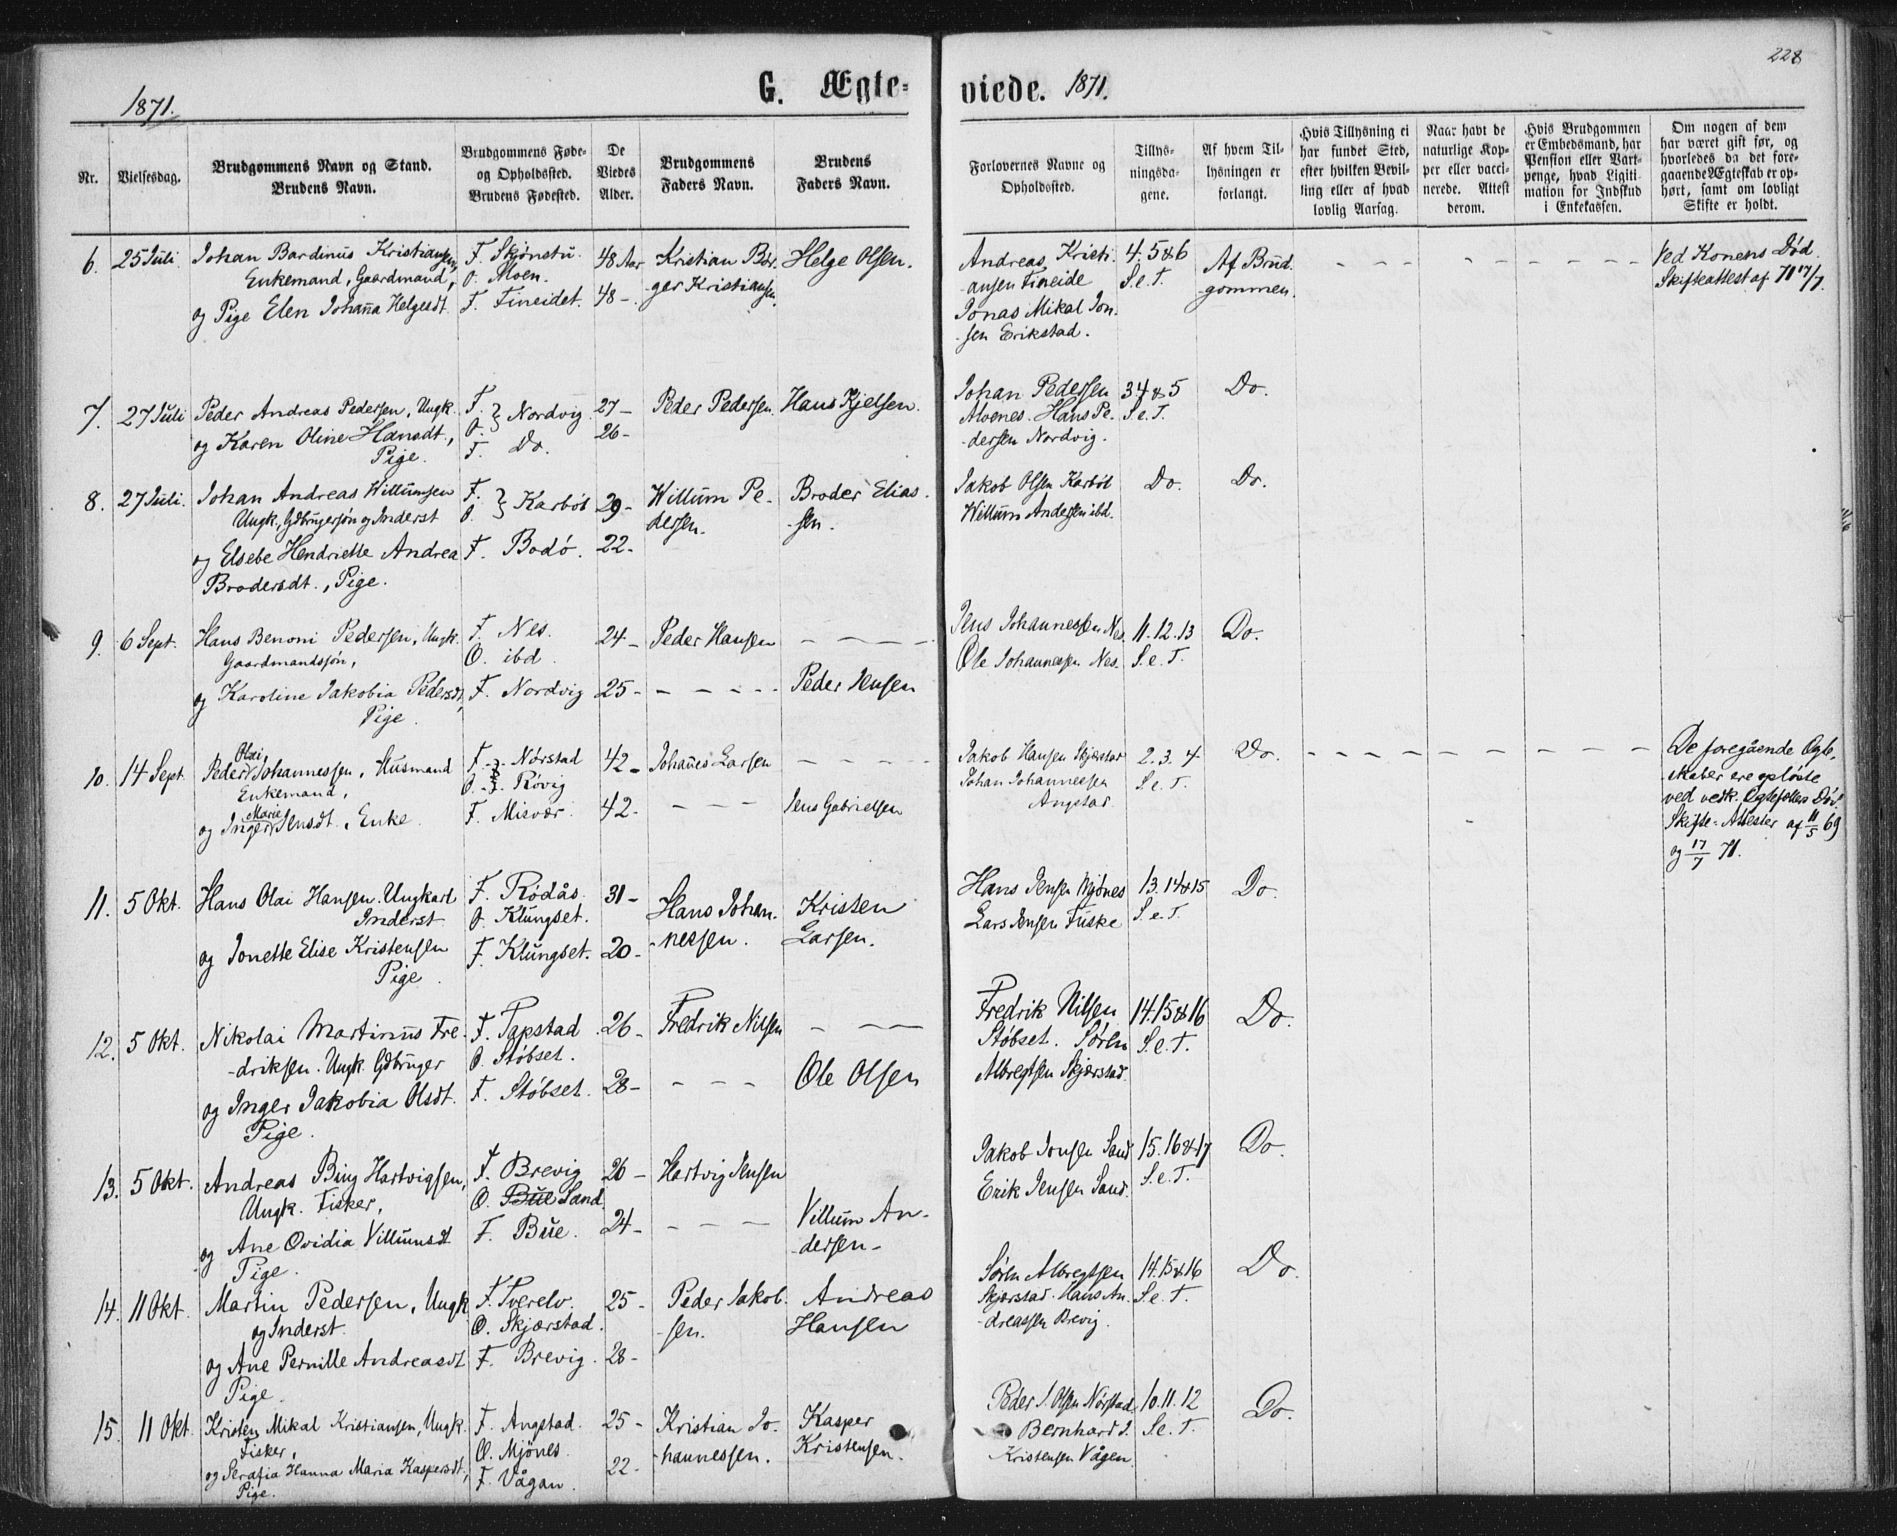 228
1871.
G. Ægte-
viede. 1871.
Nr.
Vielsesdag.
Brudgommens Navn og Stand.
Brudens Navn.
Brudgommens Føde-
og Opholdssted.
Brudens Fødested.
De
Viedes
Alder.
Brudgommens
Faders Navn.
Brudens
Faders Navn.
Forlovernes Navne og
Opholdssted.
Tillys-
ningsda-
gene.
Af hvem Til-
lysningen er
forlangt.
Hvis Tillysning ei
har fundet Sted,
efter hvilken Bevil-
ling eller af hvad
lovlig Aarsag.
Naar havt de
naturlige Kop-
per eller vacci-
nerede. Attest
derom.
Hvis Brudgommen
er Embedsmand, har
Pension eller Vart-
penge, hvad Ligiti-
mation for Indskud
i Enkekassen.
Om nogen af dem
har været gift før, og
hvorledes da det fore-
gaaende Ægteskab er op-
hørt, samt om lovligt
Skifte er holdt.
6. 25 Juli Johan Bardinus Kristiansen, F. Skjønstu 48 Aar Kristian Bør- Helge Olsen.
Enkemand, Gaardmand, O. Moen. ger Kristiansen.
og Pige Elen Johanna Helgesdt. F. Fineidet. 48 -
Andreas Kristi- 4. 5 & 6 Af Brud- Ved Konens Død.
ansen Fineide S. e. T. gommen. Skifteattest af 71 17/7.
Jonas Mikal Jon-
sen Erikstad.
7. 27 Juli Peder Andreas Pedersen, Ungk. F. } Nordvig. 27 - Peder Pedersen. Hans Kjelsen.
og Karen Oline Hansdt., O. 26 -
Pige. F. Do.
Johan Pedersen 3 4 & 5 Do.
Alvenes. Hans Pe- S. e. T.
dersen Nordvig.
8. 27 Juli. Johan Andreas Willumsen F. } Karbøl 29 - Willum Pe- Broder Elias-
Ungk, Gdbrugersøn og Inderst O. dersen. sen.
og Elsebe Hendriette Andrea F. Bodö. 22 -
Brodersdt., Pige.
Jakob Olsen Karbøl Do. Do.
Willum Andersen ibd.
9. 6 Sept. Hans Benoni Pedersen, Ungk. F. Nes. 24 - Peder Hansen - - -
Gaardmandssøn, O. ibd.
og Karoline Jakobia Pedersdt, F. Nordvig 25 - - - - - Peder Jensen
Pige.
Jens Johannessen Nes. 11. 12. 13 Do.
Ole Johannessen Nes. S. e. T.
10. 14 Sept. Peder Olai Johannessen, Husmand F. Nørstad 42 - Johanes Larsen - - - -
Enkemand, O. Røvig
og Inger Marie Jensdt., Enke. F. Misvær. 42 - - - - Jens Gabrielsen
Jakob Hansen Skjerstad 2. 3. 4 Do. De foregående Ægte-
Johan Johannessen S. e. T. skaber ere opløste
Angstad. ved vedk. Ægtefællers Død.
Skifte-Attester af 11/5 69
og 17/7 71.
11. 5 Okt. Hans Olai Hansen. Ungkarl F. Rødås. 31 - Hans Johan- Kristen
Inderst O. Klungset. nessen. Larsen.
og Jonette Elise Kristensen F. Klungset. 20 -
Pige.
Hans Jensen Mjönes 13. 14 & 15 Do.
Lars Jensen Fuske S. e. T.
12. 5 Okt. Nikolai Martinus Fre- F. Tapstad 26 - Fredrik Nilsen - - -
driksen. Ungk. Gdbruger O. Støbset.
og Inger Jakobia Olsdt. F. Støbset. 28 - - - - Ole Olsen
Pige.
Fredrik Nilsen 14. 15 & 16 Do.
Støbset. Sören S. e. T.
Albregtsen Skjerstad.
13. 5 Okt. Andreas Bing Hartvigsen, F. Brevig 26 - Hartvig Jensen
Ungk. Fisker, O. Bue Sand.
og Ane Ovidia Villumsdt F. Bue. 24 - - - - Villum An-
Pige. dersen -
Jakob Jonsen Sand 15. 16 & 17 Do.
Erik Jensen Sand. S. e. T.
14. 11 Okt. Martin Pedersen, Ungk. F. Tverelv. 25 - Peder Jakob- Andreas
og Inderst. O. Skjærstad. sen. Hansen
og Ane Pernille Andreasdt F. Brevig. 28 -
Pige.
Sören Albregtsen 14. 15 & 16 Do.
Skjærstad. Hans An- S. e. T.
dreassen Brevig.
15. 11 Okt. Kristen Mikal Kristiansen, Ungk. F. Angstad. 25 - Kristian Jo- Kasper
Fisker, O. Mjönes. hannessen. Kristensen.
og Serafia Hanna Maria Kaspersdt, F. Vågan. 22 -
Pige.
Peder J. Olsen Nørstad 10. 11. 12 Do.
Bernhard J. S. e. T.
Kristensen Vågen.